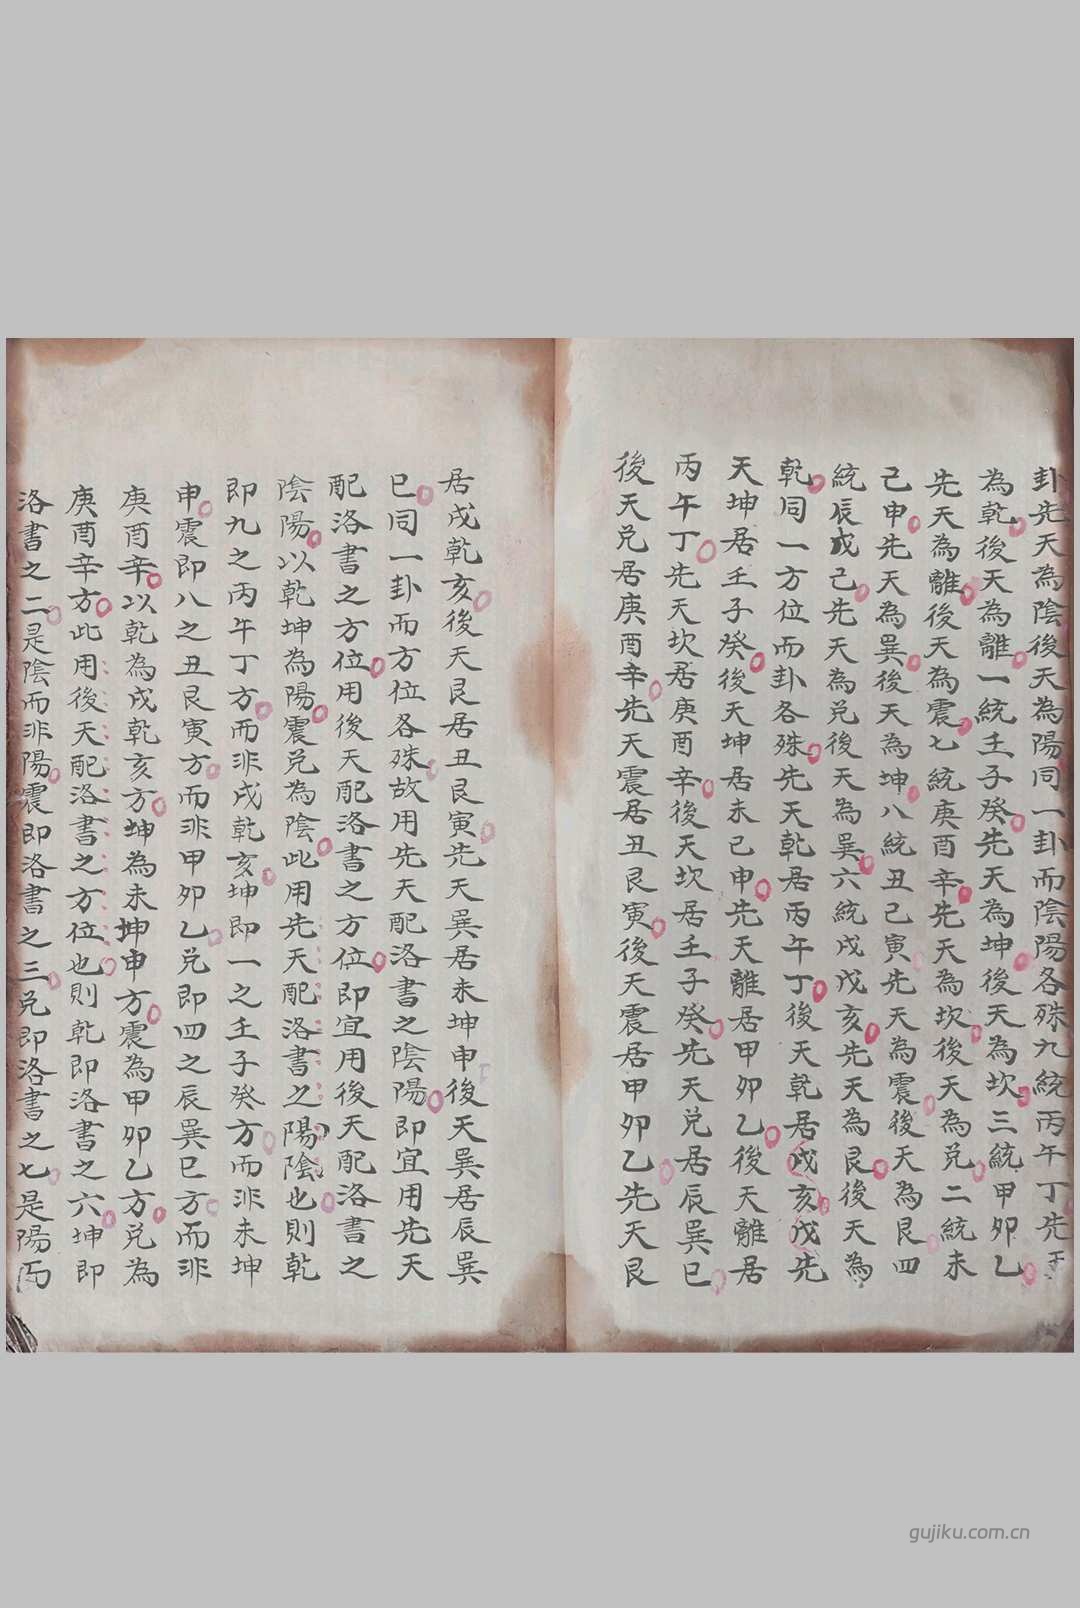 卦先天為陰後天為陽同一卦而陰陽各殊九統丙午丁先天
為乾後天為離一統壬子癸先天為坤後天為坎三統甲卯乙
先天為離後天為震七統庚酉辛先天為坎後天為兑二統未
己申先天為巽後天為坤八統丑己寅先天為震後天為艮四
統辰戌己先天為兑後天為巽六統戌戊亥先天為艮後天為
乾同一方位而卦各殊先天乾居丙午丁後天乾居戌亥戊先
天坤居壬子癸後天坤居未己申先天離居甲卯乙後天離居
丙午丁先天坎居庚酉辛後天坎居壬子癸先天兑居辰巽巳
後天兑居庚酉辛先天震居丑艮寅後天震居甲卯乙先天艮
居戌乾亥後天艮居丑艮寅先天巽居未坤申後天巽居辰巽
巳同一卦而方位各殊故用先天配洛書之陰陽即宜用先天
配洛書之方位用後天配洛書之方位即宜用後天配洛書之
陰陽以乾坤為陽震兑為陰此用先天配洛書之陽陰也則乾
即九之丙午丁方而非戌乾亥坤即一之壬子癸方而非未坤
申震即八之丑艮寅方而非甲卯乙兑即四之辰巽巳方而非
庚酉辛以乾為戌乾亥方坤為未坤申方震為甲卯乙方兑為
庚酉辛方此用後天配洛書之方位也則乾即洛書之六坤即
洛書之二是陰而非陽震即洛書之三兑即洛書之七是陽而
gujiku.com.cn